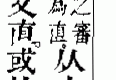 之審
爲直从
文直。或